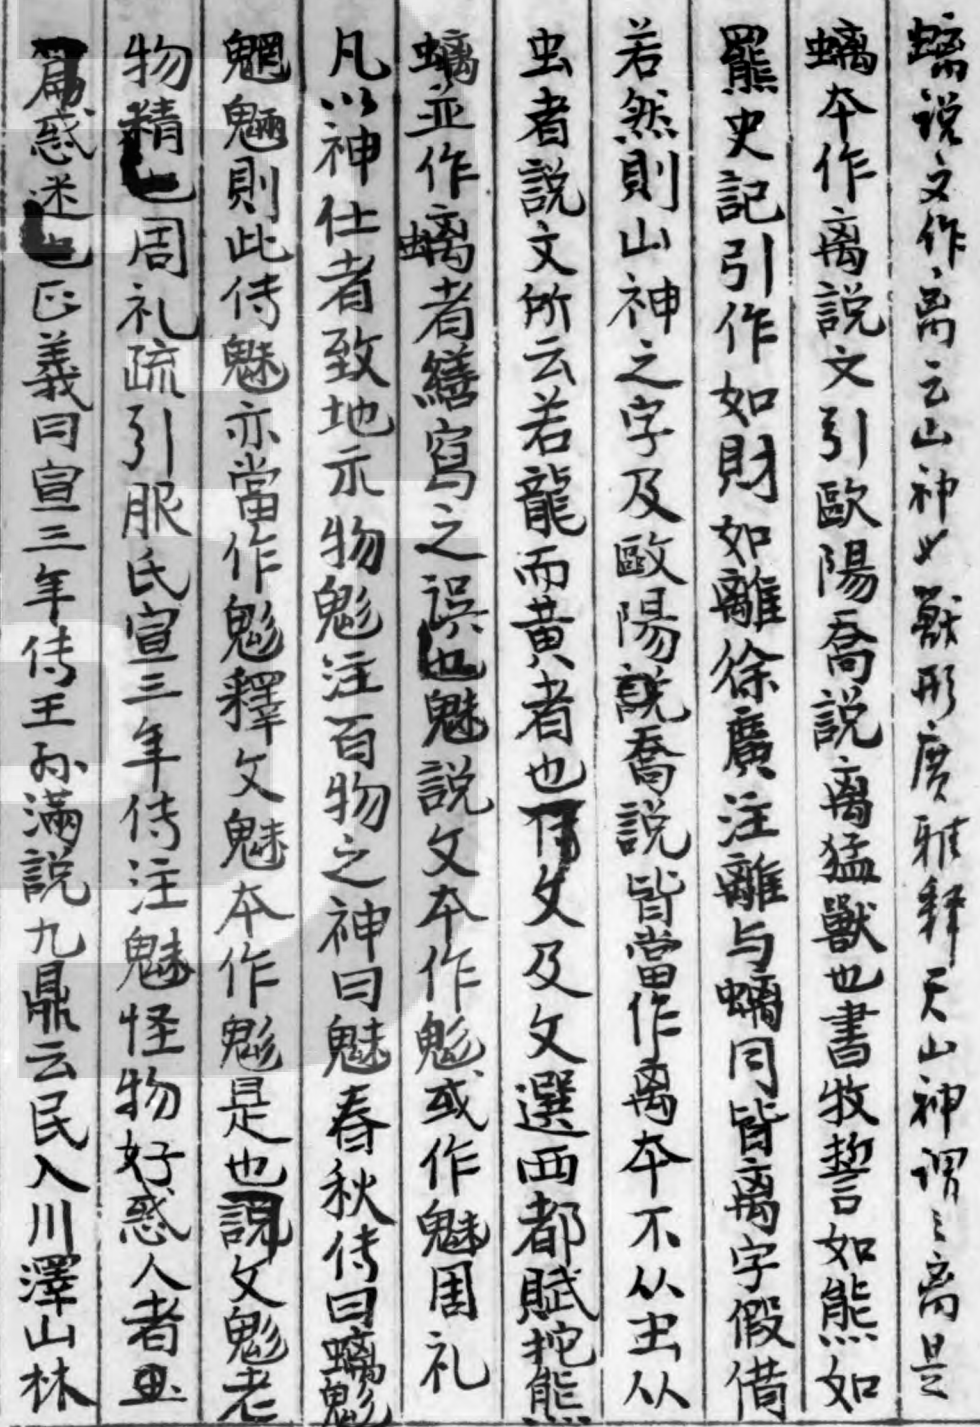 螭說文作离云山神也獸形廣雅释天山神謂之离是
螭本作离說文引歐陽喬說离猛獸也書牧誓如熊如
羆史記引作如財如離徐廣注離与螭同皆离字假借
若然則山神之字及歐陽說喬說皆當作离本不从虫从
虫者說文所云若龍而黃者也傳文及文選西都賦挖熊
螭並作螭者繕寫之誤也魅說文本作鬽或作魅周礼
凡以神仕者致地示物鬽注百物之神曰魅春秋傳曰螭鬽
魍魎則此侍魅亦當作鬽釋文魅本作鬽是也說文鬽老
物精也周礼疏引服氏宣三年侍注魅怪物好惑人者並
篇惑迷也正義同宣三年侍王孫滿說九鼎云民入川澤山林